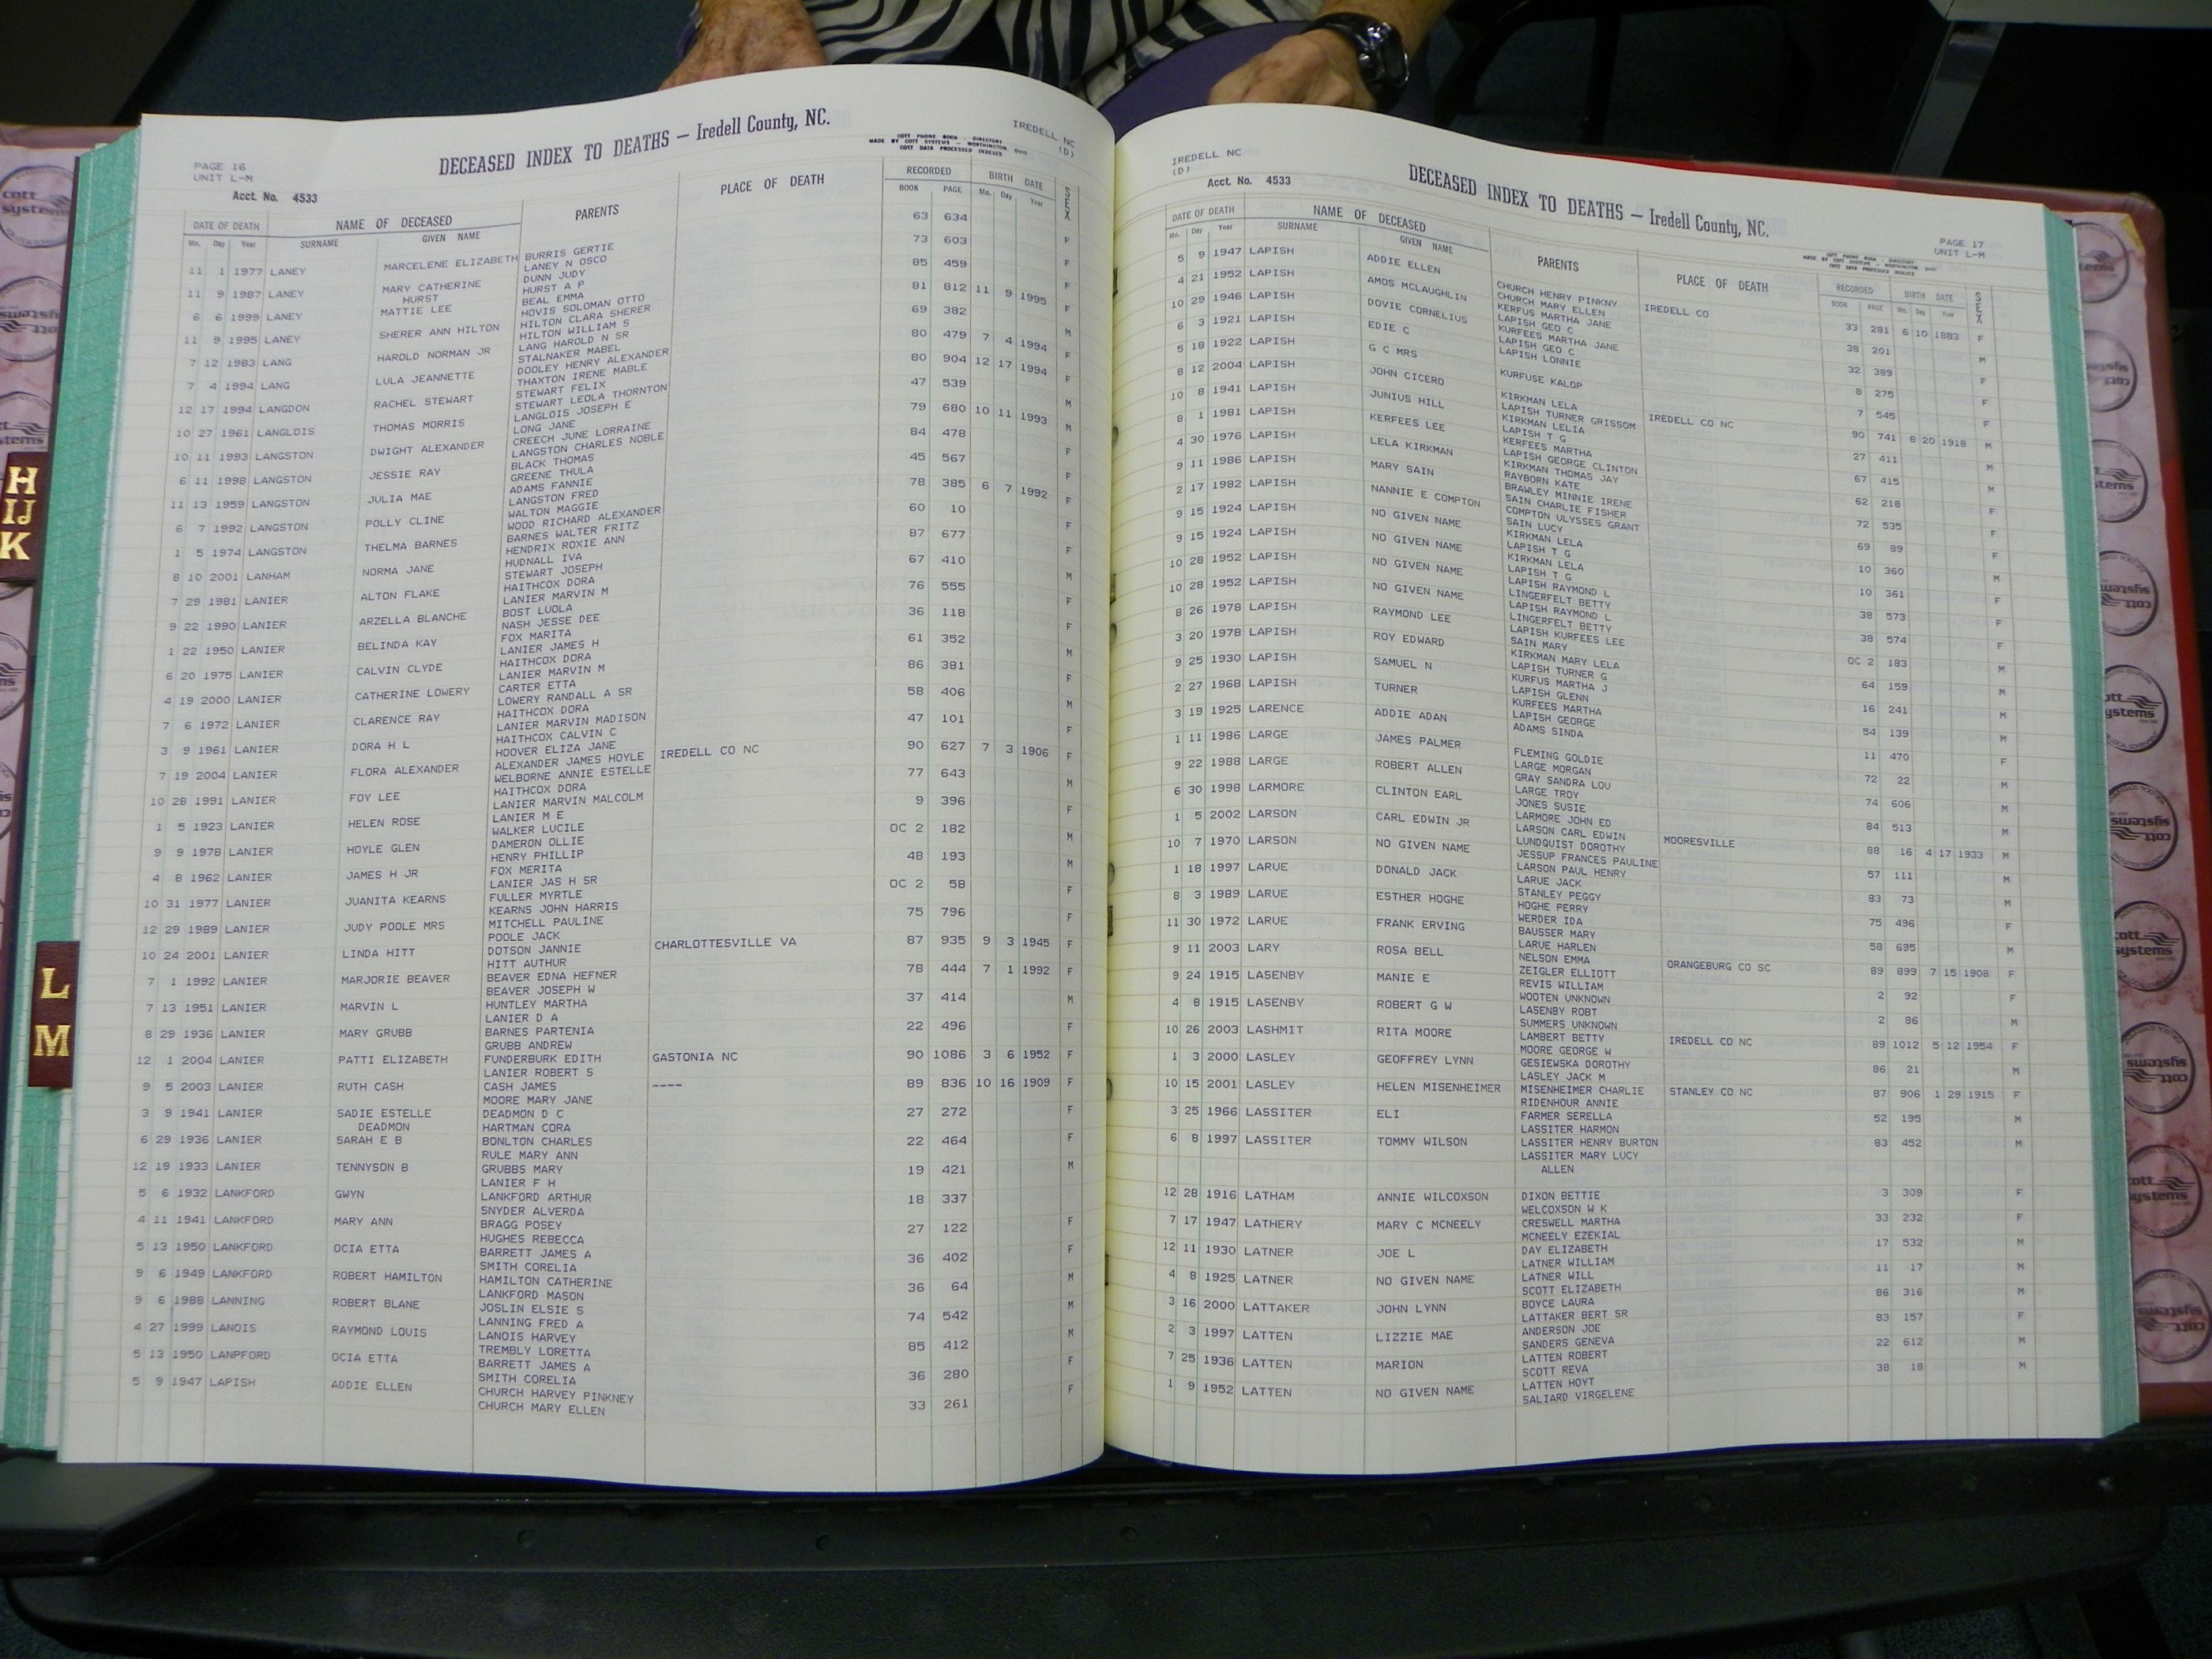 PAGE 16
UNIT L-M
DECEASED INDEX TO DEATHS — Iredell County, NC.
COTT PHONE BOOK - DIRECTORY
MADE BY COTT SYSTEMS - WORTHINGTON,
COTT DATA PROCESSED INDEXES
IREDELL NC
(D)
Acct. No. 4533
DATE OF DEATH NAME OF DECEASED PARENTS PLACE OF DEATH RECORDED BIRTH DATE SEX
Mo. Day Year SURNAME GIVEN NAME BOOK PAGE Mo. Day Year
11 1 1977 LANEY MARCELENE ELIZABETH BURRIS GERTIE 63 634 F
LANEY N OSCO
11 9 1987 LANEY MARY CATHERINE DUNN JUDY 73 603 F
HURST HURST A P
6 6 1999 LANEY MATTIE LEE BEAL EMMA 85 459 F
HOVIS SOLOMAN OTTO
11 9 1995 LANEY SHERER ANN HILTON HILTON CLARA SHERER 81 812 11 9 1995
HILTON WILLIAM S
7 12 1983 LANG HAROLD NORMAN JR LANG HAROLD N SR 69 382 M
STALNAKER MABEL
7 4 1994 LANG LULA JEANNETTE DOOLEY HENRY ALEXANDER 80 479 7 4 1994 F
THAXTON IRENE MABLE
12 17 1994 LANGDON RACHEL STEWART STEWART FELIX 80 904 12 17 1994 F
STEWART LEOLA THORNTON
10 27 1961 LANGLOIS THOMAS MORRIS LANGLOIS JOSEPH E 47 539 M
LONG JANE
10 11 1993 LANGSTON DWIGHT ALEXANDER CREECH JUNE LORRAINE 79 680 10 11 1993 M
LANGSTON CHARLES NOBLE
6 11 1998 LANGSTON JESSIE RAY BLACK THOMAS 84 478
GREENE THULA
11 13 1959 LANGSTON JULIA MAE ADAMS FANNIE 45 567
LANGSTON FRED
6 7 1992 LANGSTON POLLY CLINE WALTON MAGGIE 78 385 6 7 1992 F
WOOD RICHARD ALEXANDER
1 5 1974 LANGSTON THELMA BARNES BARNES WALTER FRITZ 60 10 F
HENDRIX ROXIE ANN
8 10 2001 LANHAM NORMA JANE HUDNALL IVA 87 677 F
STEWART JOSEPH
7 29 1981 LANIER ALTON FLAKE HAITHCOX DORA 67 410 M
LANIER MARVIN M
9 22 1990 LANIER ARZELLA BLANCHE BOST LUOLA 76 555 F
NASH JESSE DEE
1 22 1950 LANIER BELINDA KAY FOX MARITA 36 118 F
LANIER JAMES H
6 20 1975 LANIER CALVIN CLYDE HAITHCOX DORA 61 352 M
LANIER MARVIN M
4 19 2000 LANIER CATHERINE LOWERY CARTER ETTA 86 381 F
LOWERY RANDALL A SR
7 6 1972 LANIER CLARENCE RAY HAITHCOX DORA 58 406 M
LANIER MARVIN MADISON
3 9 1961 LANIER DORA H L HAITHCOX CALVIN C 47 101
HOOVER ELIZA JANE
7 19 2004 LANIER FLORA ALEXANDER ALEXANDER JAMES HOYLE IREDELL CO NC 90 627 7 3 1906 F
WELBORNE ANNIE ESTELLE
10 28 1991 LANIER FOY LEE HAITHCOX DORA 77 643 M
LANIER MARVIN MALCOLM
1 5 1923 LANIER HELEN ROSE LANIER M E 9 396 F
WALKER LUCILE
9 9 1978 LANIER HOYLE GLEN DAMERON OLLIE OC 2 182 M
HENRY PHILLIP
4 8 1962 LANIER JAMES H JR FOX MERITA 48 193 M
LANIER JAS H SR
10 31 1977 LANIER JUANITA KEARNS FULLER MYRTLE OC 2 58 F
KEARNS JOHN HARRIS
12 29 1989 LANIER JUDY POOLE MRS MITCHELL PAULINE 75 796 F
POOLE JACK
10 24 2001 LANIER LINDA HITT DOTSON JANNIE CHARLOTTESVILLE VA 87 935 9 3 1945 F
HITT AUTHUR
7 1 1992 LANIER MARJORIE BEAVER BEAVER EDNA HEFNER 78 444 7 1 1992 F
BEAVER JOSEPH W
7 13 1951 LANIER MARVIN L HUNTLEY MARTHA 37 414 M
LANIER D A
8 29 1936 LANIER MARY GRUBB BARNES PARTENIA 22 496 F
GRUBB ANDREW
12 1 2004 LANIER PATTI ELIZABETH FUNDERBURK EDITH GASTONIA NC 90 1086 3 6 1952 F
LANIER ROBERT S
9 5 2003 LANIER RUTH CASH CASH JAMES ---- 89 836 10 16 1909 F
MOORE MARY JANE
3 9 1941 LANIER SADIE ESTELLE DEADMON D C 27 272 F
DEADMON HARTMAN CORA
6 29 1936 LANIER SARAH E B BONLTON CHARLES 22 464 F
RULE MARY ANN
12 19 1933 LANIER TENNYSON B GRUBBS MARY 19 421 M
LANIER F H
5 6 1932 LANKFORD GWYN LANKFORD ARTHUR 18 337
SNYDER ALVERDA
4 11 1941 LANKFORD MARY ANN BRAGG POSEY 27 122 F
HUGHES REBECCA
5 13 1950 LANKFORD OCIA ETTA BARRETT JAMES A 36 402 F
SMITH CORELIA
9 6 1949 LANKFORD ROBERT HAMILTON HAMILTON CATHERINE 36 64 M
LANKFORD MASON
9 6 1988 LANNING ROBERT BLANE JOSLIN ELSIE S 74 542 M
LANNING FRED A
4 27 1999 LANOIS RAYMOND LOUIS LANOIS HARVEY 85 412 M
TREMBLY LORETTA
5 13 1950 LANPFORD OCIA ETTA BARRETT JAMES A 36 280 F
SMITH CORELIA
5 9 1947 LAPISH ADDIE ELLEN CHURCH HARVEY PINKNEY 33 261 F
CHURCH MARY ELLEN
IREDELL NC
(D)
Acct. No. 4533
DECEASED INDEX TO DEATHS — Iredell County, NC.
PAGE 17
UNIT L-M
DATE OF DEATH NAME OF DECEASED PARENTS PLACE OF DEATH RECORDED BIRTH DATE SEX
Mo. Day Year SURNAME GIVEN NAME BOOK PAGE Mo. Day Year
5 9 1947 LAPISH ADDIE ELLEN CHURCH HENRY PINKNY IREDELL CO 33 281 6 10 1883 F
CHURCH MARY ELLEN
4 21 1952 LAPISH AMOS MCLAUGHLIN KERFUS MARTHA JANE 38 201 M
LAPISH GEO C
10 29 1946 LAPISH DOVIE CORNELIUS KURFEES MARTHA JANE 32 389 F
LAPISH GEO C
6 3 1921 LAPISH EDIE C LAPISH LONNIE 8 275 F
5 18 1922 LAPISH G C MRS KURFUSE KALOP 7 545 F
8 12 2004 LAPISH JOHN CICERO KIRKMAN LELA IREDELL CO NC 90 741 8 20 1918 M
LAPISH TURNER GRISSOM
10 8 1941 LAPISH JUNIUS HILL KIRKMAN LELIA 27 411 M
LAPISH T G
8 1 1981 LAPISH KERFEES LEE KERFEES MARTHA 67 415 M
LAPISH GEORGE CLINTON
4 30 1976 LAPISH LELA KIRKMAN KIRKMAN THOMAS JAY 62 218 F
RAYBORN KATE
9 11 1986 LAPISH MARY SAIN BRAWLEY MINNIE IRENE 72 535 F
SAIN CHARLIE FISHER
2 17 1982 LAPISH NANNIE E COMPTON COMPTON ULYSSES GRANT 69 89 F
SAIN LUCY
9 15 1924 LAPISH NO GIVEN NAME KIRKMAN LELA 10 360 M
LAPISH T G
9 15 1924 LAPISH NO GIVEN NAME KIRKMAN LELA 10 361 F
LAPISH T G
10 28 1952 LAPISH NO GIVEN NAME LAPISH RAYMOND L 38 573 F
LINGERFELT BETTY
10 28 1952 LAPISH NO GIVEN NAME LAPISH RAYMOND L 38 574 F
LINGERFELT BETTY
8 26 1978 LAPISH RAYMOND LEE LAPISH KURFEES LEE OC 2 183 M
SAIN MARY
3 20 1978 LAPISH ROY EDWARD KIRKMAN MARY LELA 64 159 M
LAPISH TURNER G
9 25 1930 LAPISH SAMUEL N KURFUS MARTHA J 16 241 M
LAPISH GLENN
2 27 1968 LAPISH TURNER KURFEES MARTHA 54 139 M
LAPISH GEORGE
3 19 1925 LARENCE ADDIE ADAN ADAMS SINDA 11 470 F
1 11 1986 LARGE JAMES PALMER FLEMING GOLDIE 72 22 M
LARGE MORGAN
9 22 1988 LARGE ROBERT ALLEN GRAY SANDRA LOU 74 606 M
LARGE TROY
6 30 1998 LARMORE CLINTON EARL JONES SUSIE 84 513 M
LARMORE JOHN ED
1 5 2002 LARSON CARL EDWIN JR LARSON CARL EDWIN MOORESVILLE 88 16 4 17 1933 M
LUNDQUIST DOROTHY
10 7 1970 LARSON NO GIVEN NAME JESSUP FRANCES PAULINE 57 111 M
LARSON PAUL HENRY
1 18 1997 LARUE DONALD JACK LARUE JACK 83 73 M
STANLEY PEGGY
8 3 1989 LARUE ESTHER HOGHE HOGHE PERRY 75 496 F
WERDER IDA
11 30 1972 LARUE FRANK ERVING BAUSSER MARY 58 695 M
LARUE HARLEN
9 11 2003 LARY ROSA BELL NELSON EMMA ORANGEBURG CO SC 89 899 7 15 1908 F
ZEIGLER ELLIOTT
9 24 1915 LASENBY MANIE E REVIS WILLIAM 2 92 F
WOOTEN UNKNOWN
4 8 1915 LASENBY ROBERT G W LASENBY ROBT 2 86 M
SUMMERS UNKNOWN
10 26 2003 LASHMIT RITA MOORE LAMBERT BETTY IREDELL CO NC 89 1012 5 12 1954 F
MOORE GEORGE W
1 3 2000 LASLEY GEOFFREY LYNN GESIEWSKA DOROTHY 86 21 M
LASLEY JACK M
10 15 2001 LASLEY HELEN MISENHEIMER MISENHEIMER CHARLIE STANLEY CO NC 87 906 1 29 1915 F
RIDENHOUR ANNIE
3 25 1966 LASSITER ELI FARMER SERELLA 52 195 M
LASSITER HARMON
6 8 1997 LASSITER TOMMY WILSON LASSITER HENRY BURTON 83 452 M
LASSITER MARY LUCY
ALLEN
12 28 1916 LATHAM ANNIE WILCOXSON DIXON BETTIE 3 309 F
WELCOXSON W K
7 17 1947 LATHERY MARY C MCNEELY CRESWELL MARTHA 33 232 F
MCNEELY EZEKIAL
12 11 1930 LATNER JOE L DAY ELIZABETH 17 532 M
LATNER WILLIAM
4 8 1925 LATNER NO GIVEN NAME LATNER WILL 11 17 M
SCOTT ELIZABETH
3 16 2000 LATTAKER JOHN LYNN BOYCE LAURA 86 316 M
LATTAKER BERT SR
2 3 1997 LATTEN LIZZIE MAE ANDERSON JOE 83 157 F
SANDERS GENEVA
7 25 1936 LATTEN MARION LATTEN ROBERT 22 612 M
SCOTT REVA
1 9 1952 LATTEN NO GIVEN NAME LATTEN HOYT 38 18 M
SALIARD VIRGELENE
H
IJ
K
L
M
cott
systems